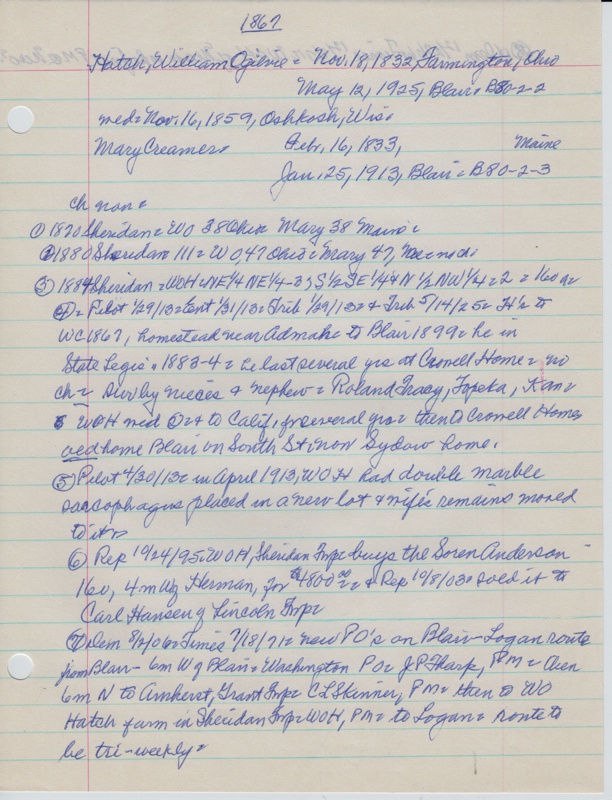 1867
Hatch, William Ogilvie = Nov. 18, 1832, Farmington, Ohio
May 12, 1925, Blair = B80-2-2
med = Nov. 16, 1859, Oshkosh, Wis.
Mary Creamer = Febr. 16, 1833, Maine
Jan. 25, 1913, Blair = B80-2-3
ch none
① 1870 Sheridan = WO 38 Ohio = Mary 38 Maine =
② 1880 Sheridan 111 = WO, 47 Ohio = Mary 47, Me = no ch
③ 1884 Sheridan = WOH = NE 1/4 NE 1/4 - 3; S 1/2 SE 1/4 & N 1/2 NW 1/4 = 2 = 160 a =
④ = Pilot 1/29/13 = Ent 1/31/13 = Trib 1/29/13 = & Trib 5/14/25 = H's to
WC 1867, homestead near Admah = to Blair 1899 = he in
State Legis. 1883-4 = he last several yrs at Crowell Home = no
ch = surv by nieces & nephew = Roland Tracy, Topeka, Kan =
WOH med = to Calif, for several yrs = then to Crowell Home,
old home Blair on South St = now Sydow home.
⑤ Pilot 4/30/13 = in April 1913, WOH had double marble
sarcophagus placed in a new lot & wife's remains moved
to it =
⑥ Rep 10/24/95 = WOH, Sheridan Twp = buys the Soren Anderson
160, 4m W of Herman, for $4800.00 = & Rep 10/8/03 = sold it to
Carl Hansen of Lincoln Twp =
⑦ Times 7/18/71 = new PO's on Blair-Logan route
from Blair - 6m W of Blair = Washington P.O. = J P Tharp, PM = then
6m N to Amherst, Grant Twp = C L Skinner, PM = then to WO
Hatch farm in Sheridan Twp = WOH, PM = to Logan = route to
be tri-weekly =